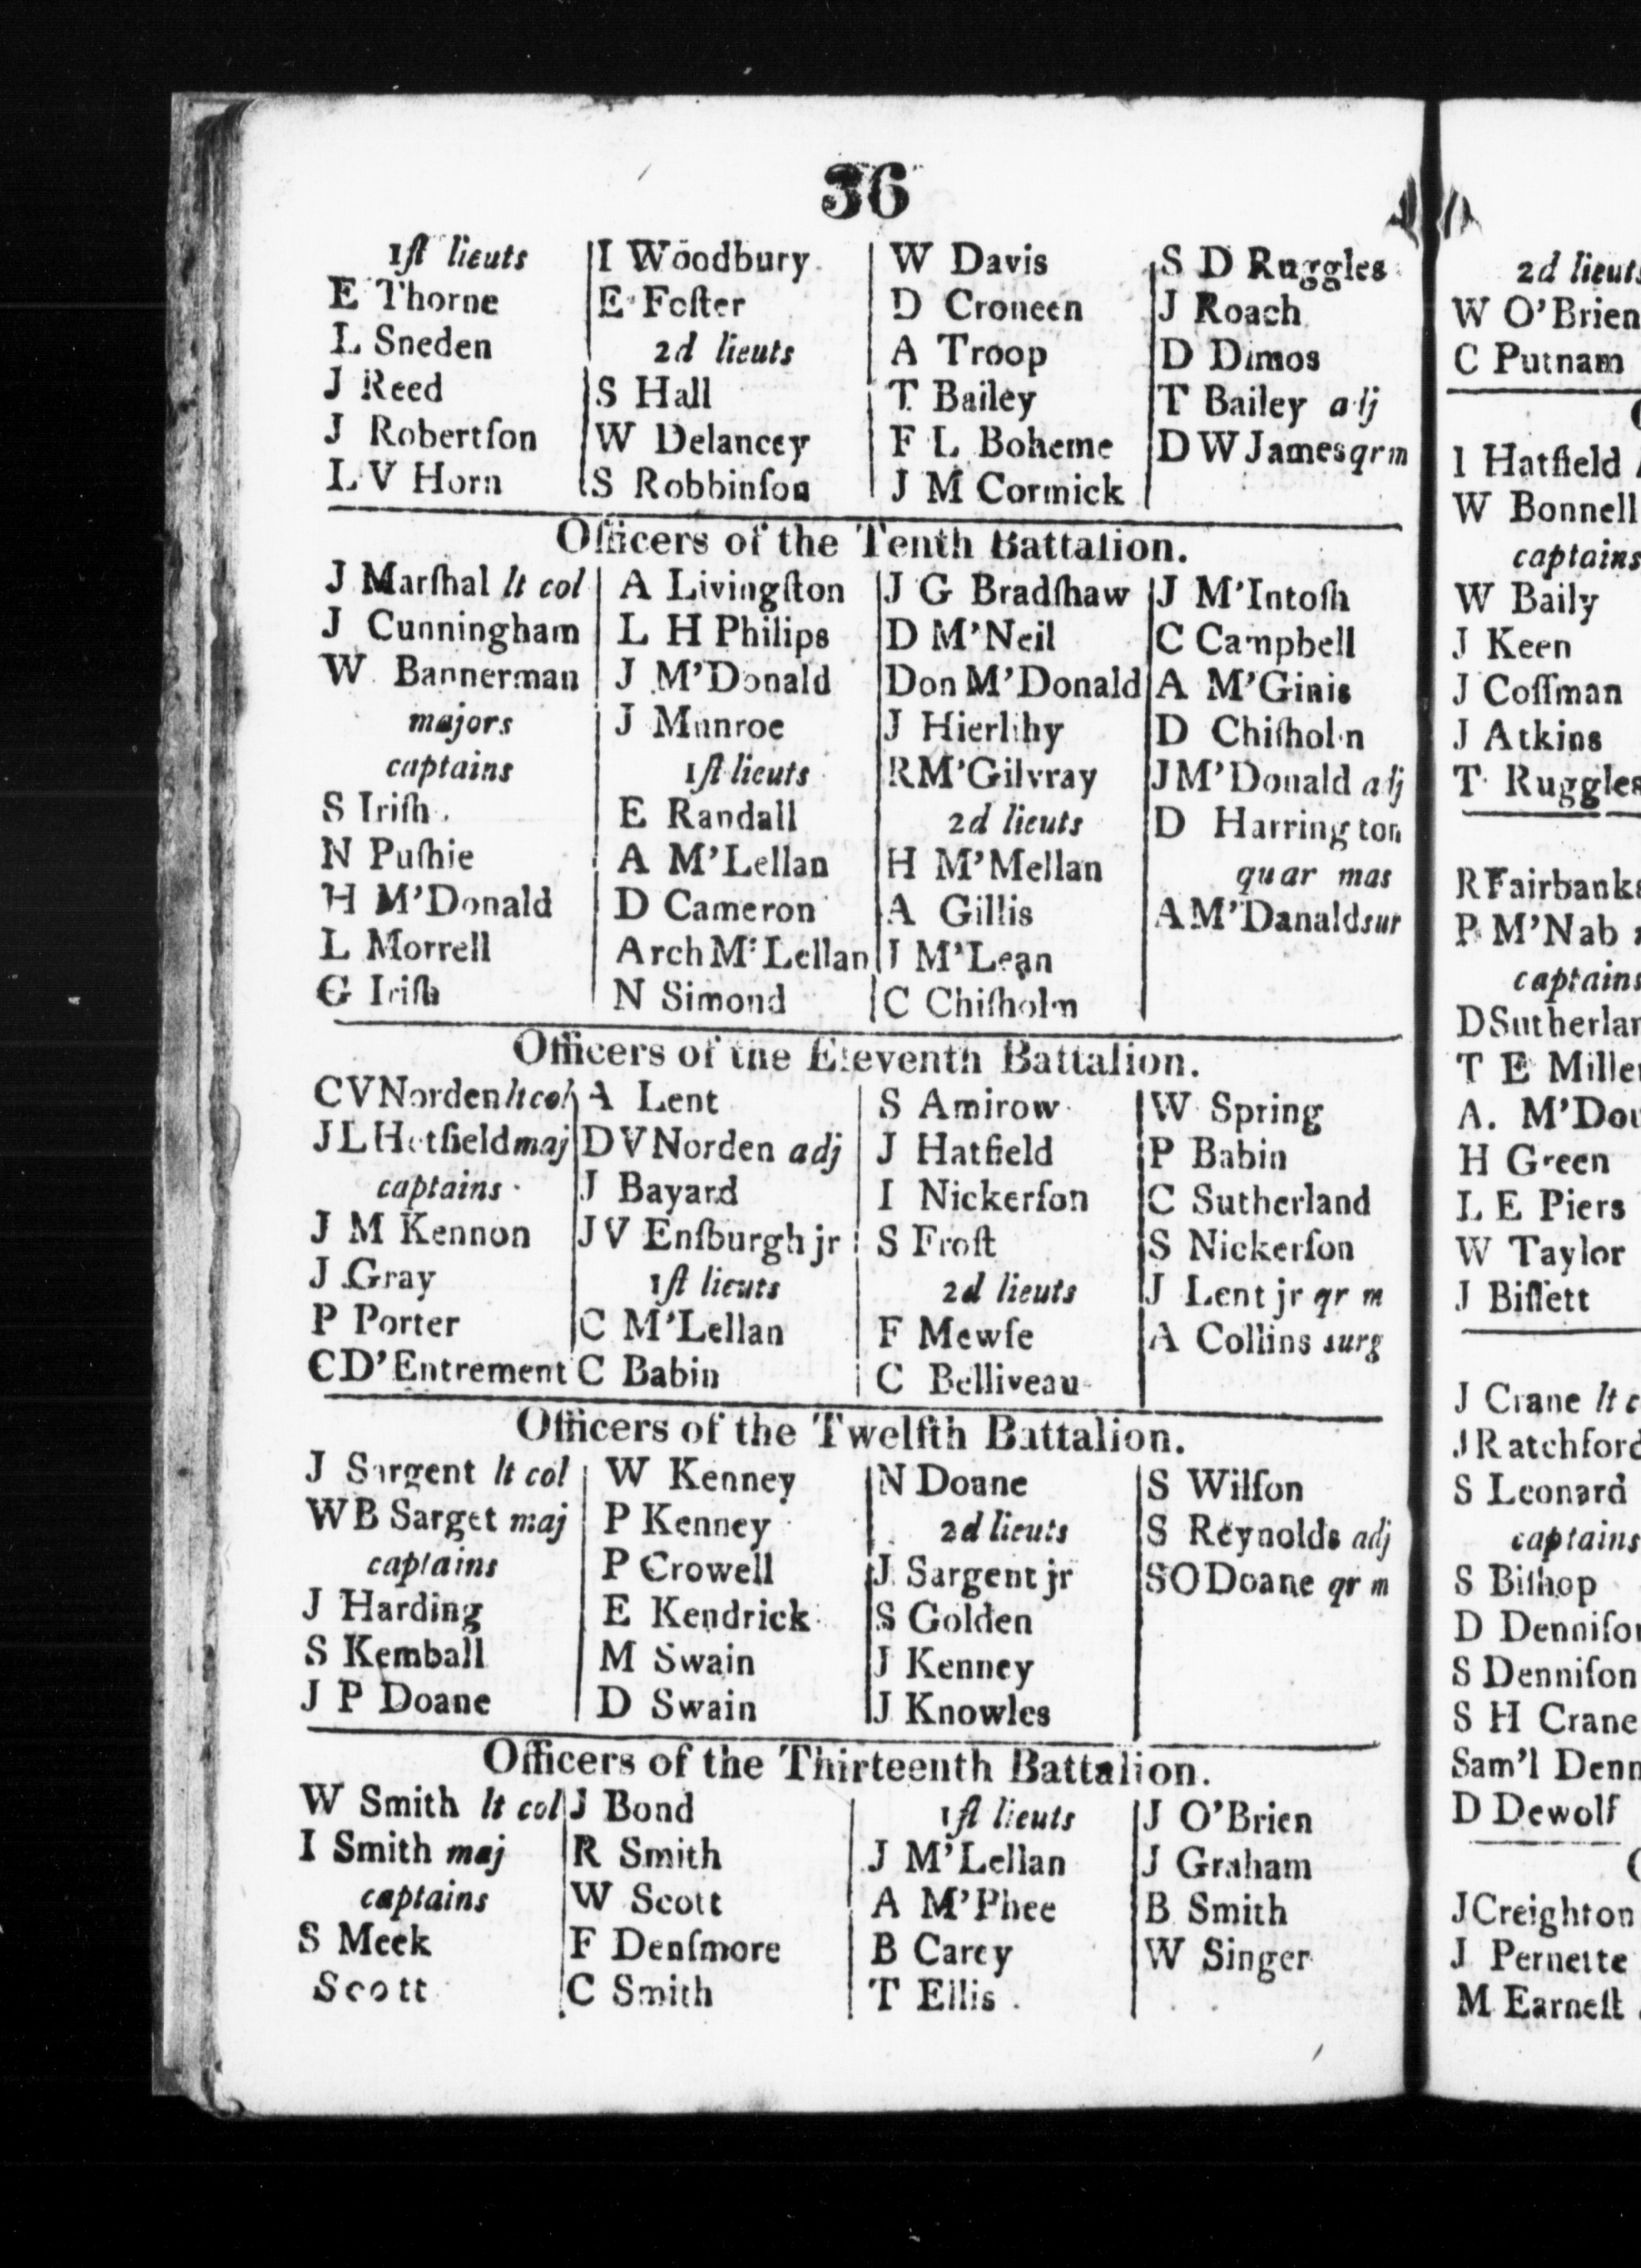 36
1ſt lieuts
E Thorne
L Sneden
J Reed
J Robertſon
L V Horn
I Woodbury
E Foſter
2d lieuts
S Hall
W Delancey
S Robbinſon
W Davis
D Croneen
A Troop
T Bailey
F L Boheme
J M Cormick
S D Ruggles
J Roach
D Dimos
T Bailey adj
D W James qr m
Officers of the Tenth Battalion.
J Marſhal lt col
J Cunningham
W Bannerman
majors
captains
S Iriſh
N Puſhie
H M'Donald
L Morrell
G Iriſh
A Livingſton
L H Philips
J M'Donald
J Munroe
1ſt lieuts
E Randall
A M'Lellan
D Cameron
Arch M'Lellan
N Simond
J G Bradſhaw
D M'Neil
Don M'Donald
J Hierlihy
R M'Gilvray
2d lieuts
H M'Mellan
A Gillis
J M'Lean
C Chiſholm
J M'Intoſh
C Campbell
A M'Ginis
D Chiſholm
J M'Donald adj
D Harrington
quar mas
A M'Danald sur
Officers of the Eleventh Battalion.
C V Norden lt col
J L Hetfield maj
captains
J M Kennon
J Gray
P Porter
C D'Entrement
A Lent
D V Norden adj
J Bayard
J V Enſburgh jr
1ſt lieuts
C M'Lellan
C Babin
S Amirow
J Hatfield
I Nickerſon
S Froſt
2d lieuts
F Mewſe
C Belliveau
W Spring
P Babin
C Sutherland
S Nickerſon
J Lent jr qr m
A Collins surg
Officers of the Twelfth Battalion.
J Sargent lt col
W B Sarget maj
captains
J Harding
S Kemball
J P Doane
W Kenney
P Kenney
P Crowell
E Kendrick
M Swain
D Swain
N Doane
2d lieuts
J Sargent jr
S Golden
J Kenney
J Knowles
S Wilſon
S Reynolds adj
S O Doane qr m
Officers of the Thirteenth Battalion.
W Smith lt col
I Smith maj
captains
S Meek
Scott
J Bond
R Smith
W Scott
F Denſmore
C Smith
1ſt lieuts
J M'Lellan
A M'Phee
B Carey
T Ellis
J O'Brien
J Graham
B Smith
W Singer
2d lieuts
W O'Brien
C Putnam
I Hatfield
W Bonnell
captains
W Baily
J Keen
J Coſſman
J Atkins
T Ruggles
R Fairbanks
P M'Nab
captains
D Sutherlan
T E Miller
A. M'Dou
H Green
L E Piers
W Taylor
J Biſſett
J Crane lt c
J Ratchford
S Leonard
captains
S Biſhop
D Denniſon
S Denniſon
S H Crane
Sam'l Denn
D Dewolf
J Creighton
J Pernette
M Earneſt